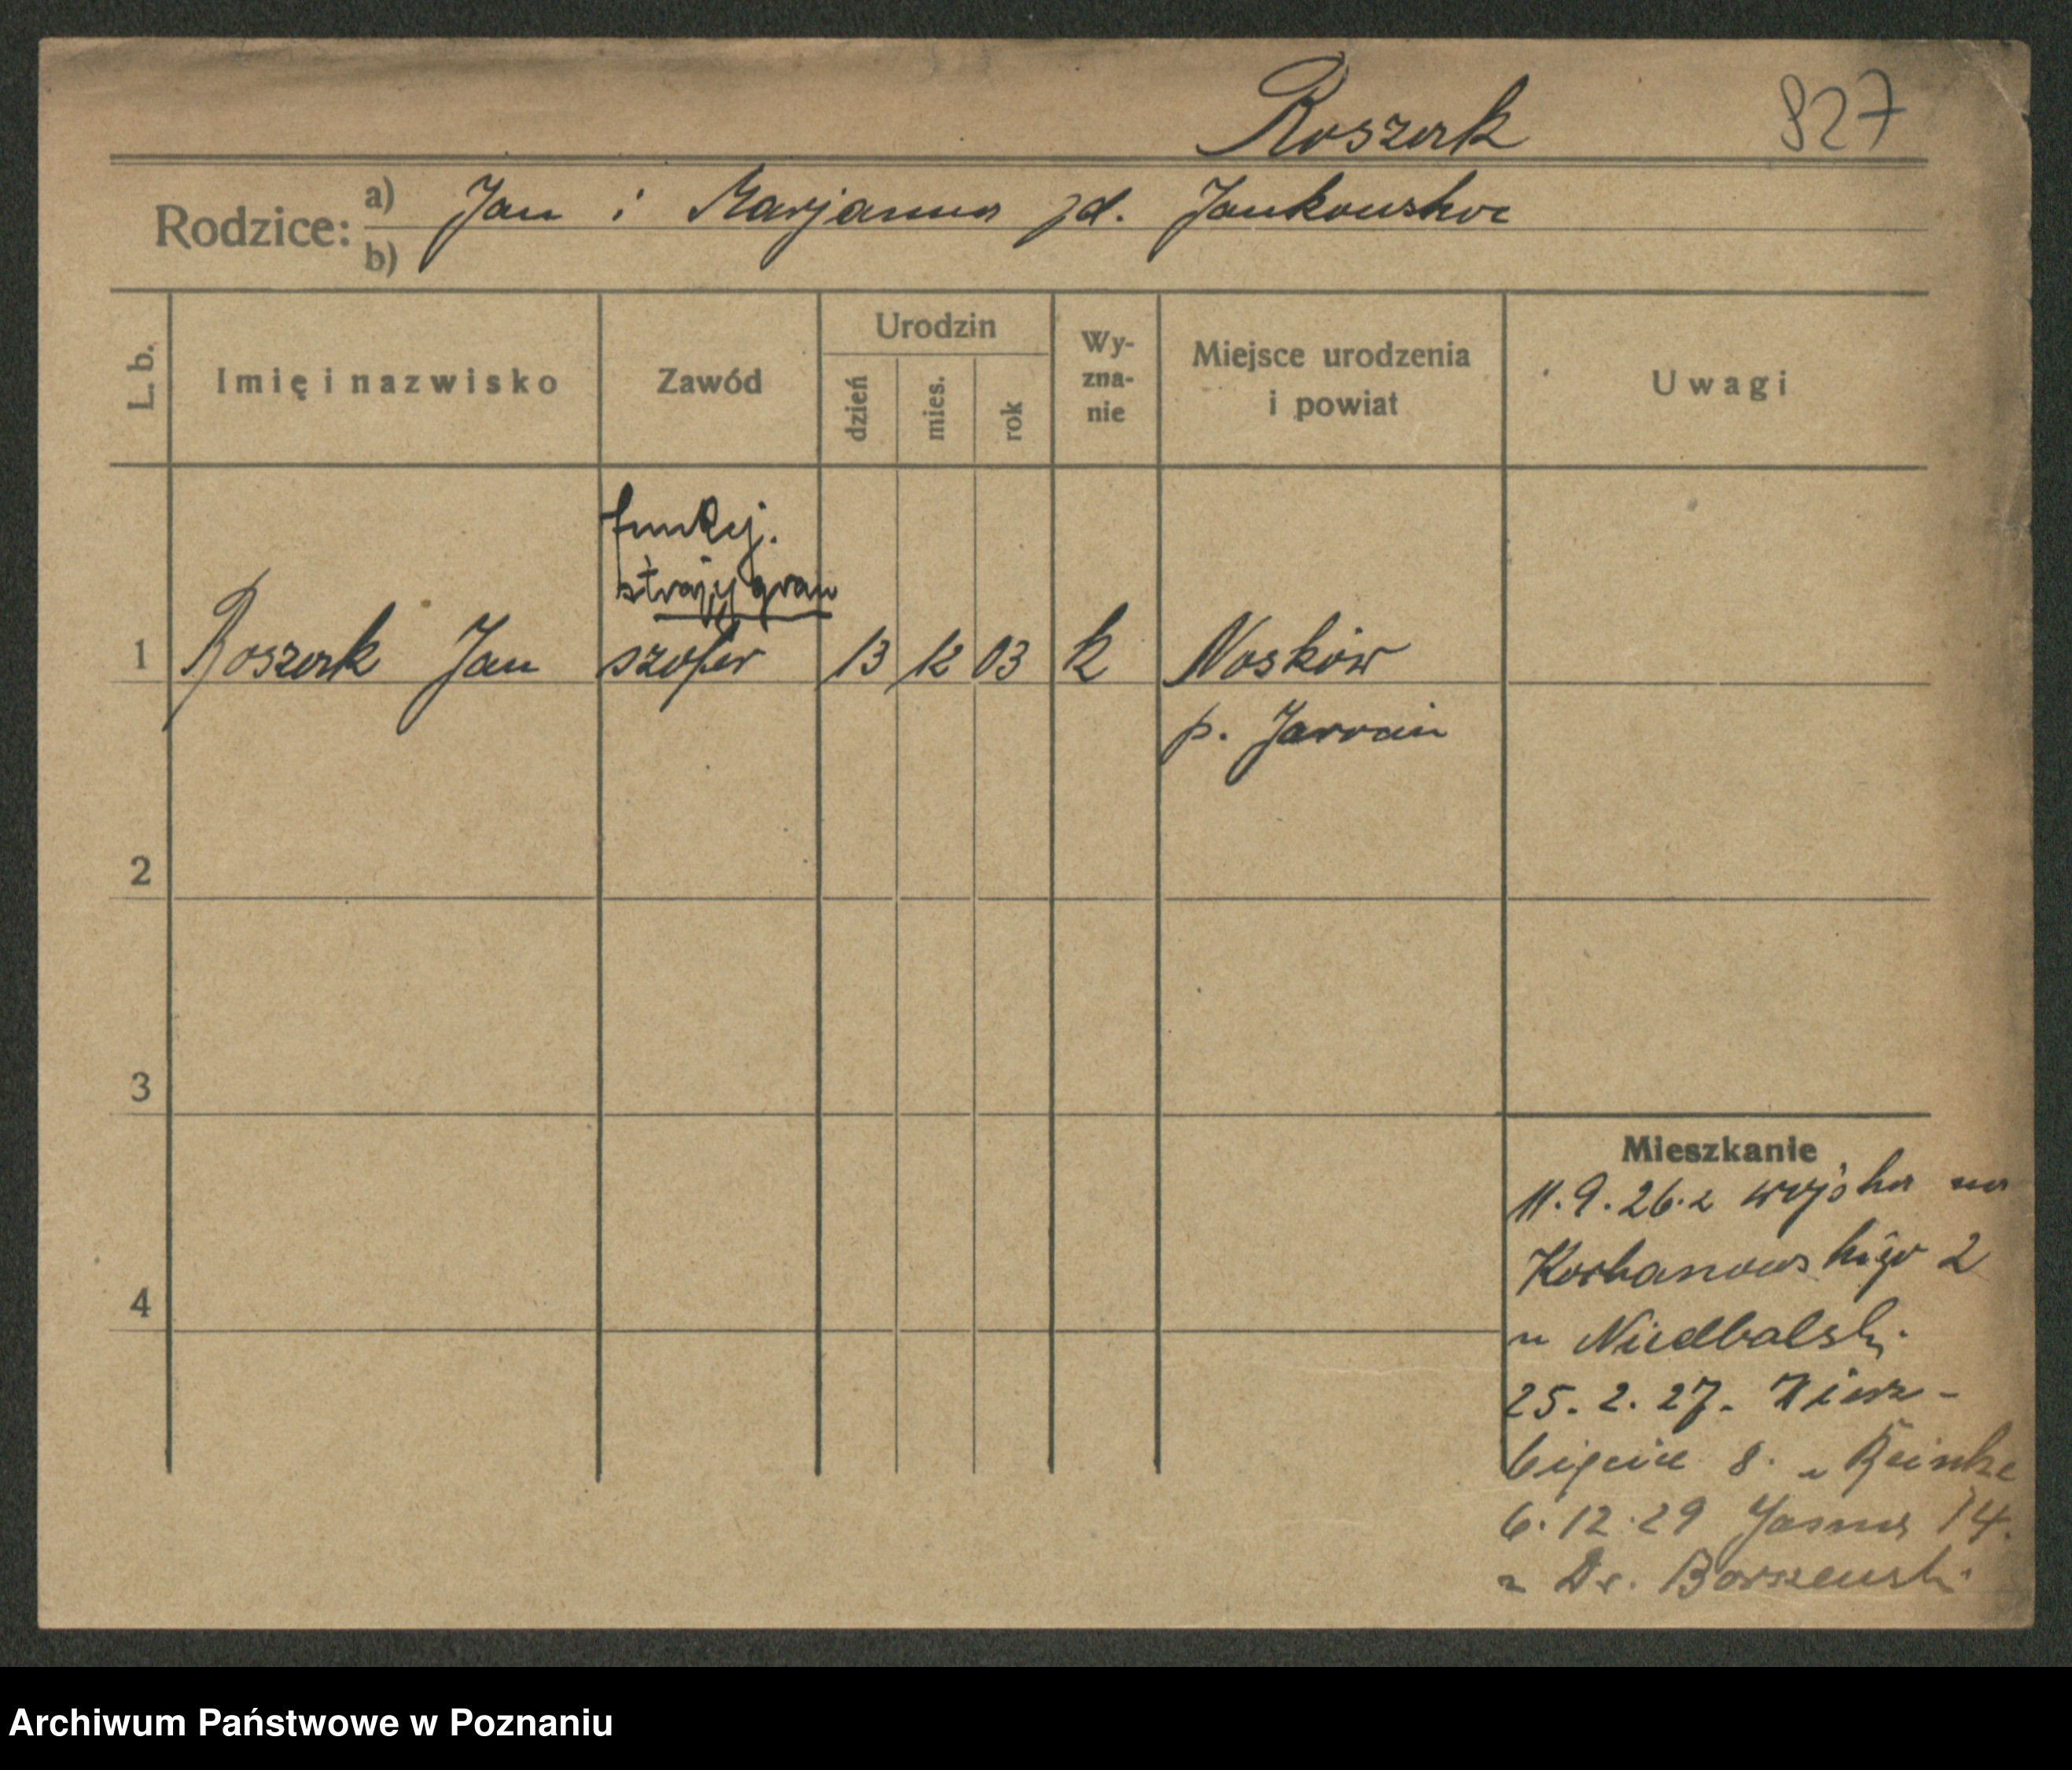 Roszak 827
Rodzice: a) Jan i Marjanna zd. Jankowska
b)
L. b. Imię i nazwisko Zawód Urodzin dzień mies. rok Wy-
zna-
nie Miejsce urodzenia
i powiat Uwagi
funkcj.
straży gran
1 Roszak Jan szofer 13 12 03 k Nosków
p. Jarocin
2
3
4
Mieszkanie
11.9.26. z wojska na
Kochanowskiego 2
u Niedbalski.
25.2.27. Wierz-
bięcice 8. u Reinke
6.12.29 Jasna 14.
u Dr.
Archiwum Państwowe w Poznaniu